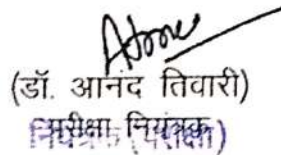 (डॉ. आनंद तिवारी)
परीक्षा नियंत्रक
नियंत्रक (परीक्षा)